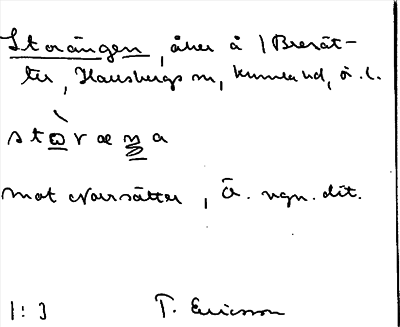 Storängen, åker å 1 Brerät-
ter, Hausbergs sn, Kumla hd, ö. l.
stɷ̀ræŋa
mot Norrsätter, Ä. ngn. dit.
1:3 T. Ericsson